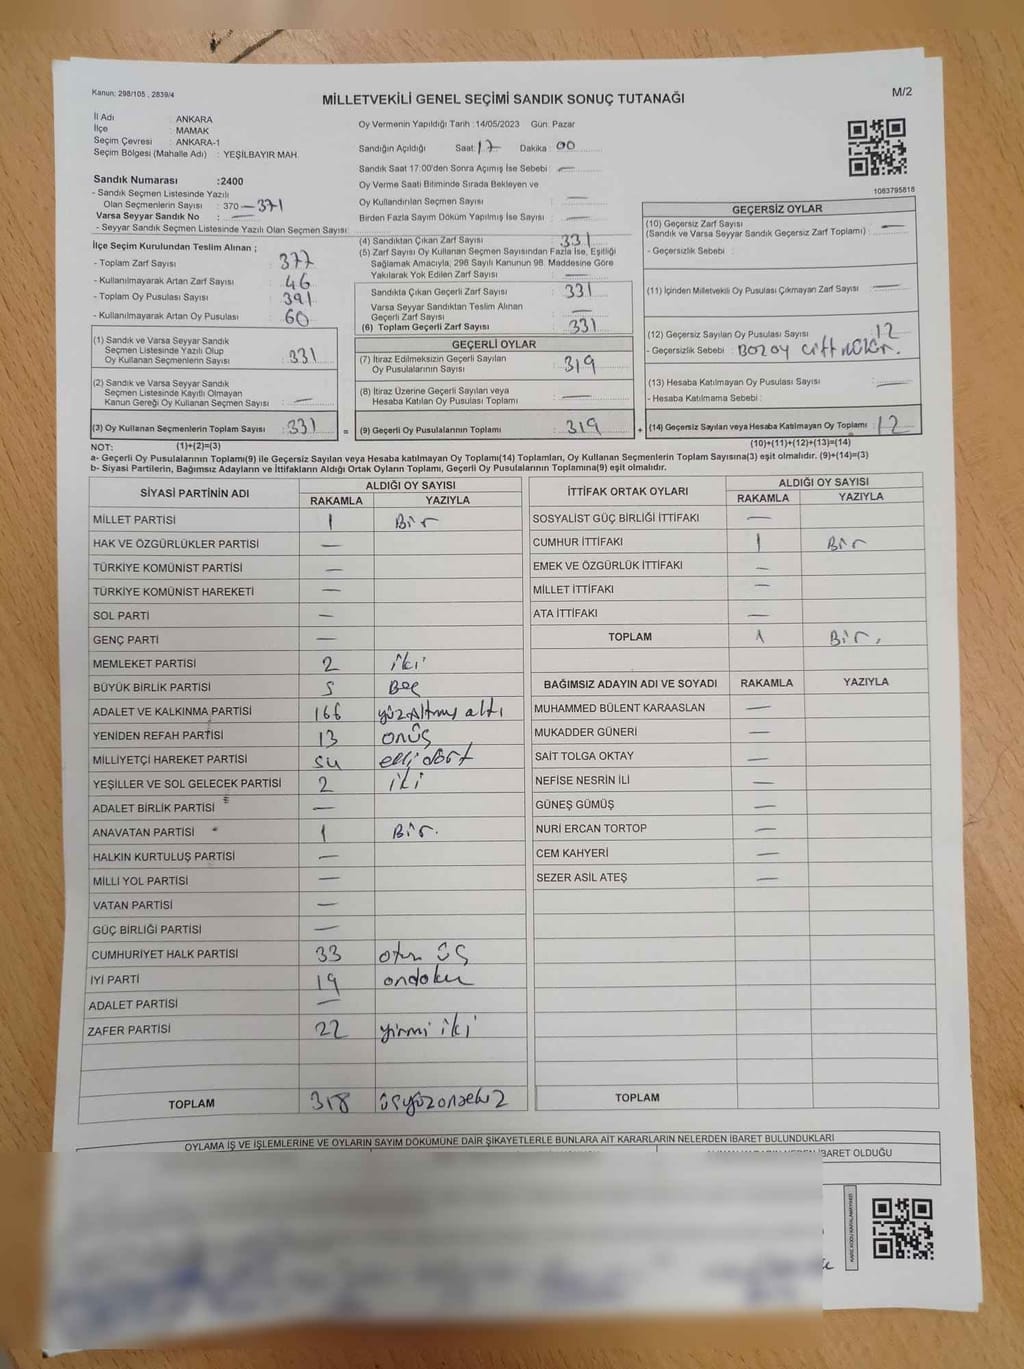 Kanun: 298/105 , 2839/4
MİLLETVEKİLİ GENEL SEÇİMİ SANDIK SONUÇ TUTANAĞI
M/2
İl Adı : ANKARA
İlçe : MAMAK
Seçim Çevresi : ANKARA-1
Seçim Bölgesi (Mahalle Adı) : YEŞİLBAYIR MAH.
Oy Vermenin Yapıldığı Tarih :14/05/2023 Gün: Pazar
Sandığın Açıldığı Saat: 17 Dakika : 00
Sandık Saat 17:00'den Sonra Açılmış İse Sebebi : —
Oy Verme Saati Bitiminde Sırada Bekleyen ve
Oy Kullandırılan Seçmen Sayısı : —
Birden Fazla Sayım Döküm Yapılmış İse Sayısı : —
1083795818
Sandık Numarası :2400
- Sandık Seçmen Listesinde Yazılı
Olan Seçmenlerin Sayısı : 370 — 371
Varsa Seyyar Sandık No : —
- Seyyar Sandık Seçmen Listesinde Yazılı Olan Seçmen Sayısı:
İlçe Seçim Kurulundan Teslim Alınan ;
- Toplam Zarf Sayısı : 377
- Kullanılmayarak Artan Zarf Sayısı : 46
- Toplam Oy Pusulası Sayısı : 391
- Kullanılmayarak Artan Oy Pusulası : 60
(1) Sandık ve Varsa Seyyar Sandık
Seçmen Listesinde Yazılı Olup
Oy Kullanan Seçmenlerin Sayısı : 331
(2) Sandık ve Varsa Seyyar Sandık
Seçmen Listesinde Kayıtlı Olmayan
Kanun Gereği Oy Kullanan Seçmen Sayısı : —
(3) Oy Kullanan Seçmenlerin Toplam Sayısı : 331 =
(4) Sandıktan Çıkan Zarf Sayısı : 331
(5) Zarf Sayısı Oy Kullanan Seçmen Sayısından Fazla İse, Eşitliği
Sağlamak Amacıyla, 298 Sayılı Kanunun 98. Maddesine Göre
Yakılarak Yok Edilen Zarf Sayısı : —
Sandıkta Çıkan Geçerli Zarf Sayısı : 331
Varsa Seyyar Sandıktan Teslim Alınan
Geçerli Zarf Sayısı : —
(6) Toplam Geçerli Zarf Sayısı : 331
GEÇERLİ OYLAR
(7) İtiraz Edilmeksizin Geçerli Sayılan
Oy Pusulalarının Sayısı : 319
(8) İtiraz Üzerine Geçerli Sayılan veya
Hesaba Katılan Oy Pusulası Toplamı : —
(9) Geçerli Oy Pusulalarının Toplamı : 319 +
GEÇERSİZ OYLAR
(10) Geçersiz Zarf Sayısı : —
(Sandık ve Varsa Seyyar Sandık Geçersiz Zarf Toplamı)
- Geçersizlik Sebebi :
(11) İçinden Milletvekili Oy Pusulası Çıkmayan Zarf Sayısı : —
(12) Geçersiz Sayılan Oy Pusulası Sayısı : 12
- Geçersizlik Sebebi :
(13) Hesaba Katılmayan Oy Pusulası Sayısı : —
- Hesaba Katılmama Sebebi :
(14) Geçersiz Sayılan veya Hesaba Katılmayan Oy Toplamı : 12
NOT: (1)+(2)=(3)
(10)+(11)+(12)+(13)=(14)
a- Geçerli Oy Pusulalarının Toplamı(9) ile Geçersiz Sayılan veya Hesaba katılmayan Oy Toplamı(14) Toplamları, Oy Kullanan Seçmenlerin Toplam Sayısına(3) eşit olmalıdır. (9)+(14)=(3)
b- Siyasi Partilerin, Bağımsız Adayların ve İttifakların Aldığı Ortak Oyların Toplamı, Geçerli Oy Pusulalarının Toplamına(9) eşit olmalıdır.
SİYASİ PARTİNİN ADI ALDIĞI OY SAYISI
RAKAMLA YAZIYLA
MİLLET PARTİSİ 1 Bir
HAK VE ÖZGÜRLÜKLER PARTİSİ —
TÜRKİYE KOMÜNİST PARTİSİ —
TÜRKİYE KOMÜNİST HAREKETİ —
SOL PARTİ —
GENÇ PARTİ —
MEMLEKET PARTİSİ 2 iki
BÜYÜK BİRLİK PARTİSİ 5 Beş
ADALET VE KALKINMA PARTİSİ 166 yüzaltmış altı
YENİDEN REFAH PARTİSİ 13 onüç
MİLLİYETÇİ HAREKET PARTİSİ 54 elli dört
YEŞİLLER VE SOL GELECEK PARTİSİ 2 iki
ADALET BİRLİK PARTİSİ —
ANAVATAN PARTİSİ 1 Bir.
HALKIN KURTULUŞ PARTİSİ —
MİLLİ YOL PARTİSİ —
VATAN PARTİSİ —
GÜÇ BİRLİĞİ PARTİSİ —
CUMHURİYET HALK PARTİSİ 33 otuz üç
İYİ PARTİ 19 ondokuz
ADALET PARTİSİ —
ZAFER PARTİSİ 22 yirmi iki
TOPLAM 318 üçyüzonsekiz
İTTİFAK ORTAK OYLARI ALDIĞI OY SAYISI
RAKAMLA YAZIYLA
SOSYALİST GÜÇ BİRLİĞİ İTTİFAKI —
CUMHUR İTTİFAKI 1 Bir
EMEK VE ÖZGÜRLÜK İTTİFAKI —
MİLLET İTTİFAKI —
ATA İTTİFAKI —
TOPLAM 1 Bir.
BAĞIMSIZ ADAYIN ADI VE SOYADI RAKAMLA YAZIYLA
MUHAMMED BÜLENT KARAASLAN —
MUKADDER GÜNERİ —
SAİT TOLGA OKTAY —
NEFİSE NESRİN İLİ —
GÜNEŞ GÜMÜŞ —
NURİ ERCAN TORTOP —
CEM KAHYERİ —
SEZER ASİL ATEŞ —
TOPLAM
OYLAMA İŞ VE İŞLEMLERİNE VE OYLARIN SAYIM DÖKÜMÜNE DAİR ŞİKAYETLERLE BUNLARA AİT KARARLARIN NELERDEN İBARET BULUNDUKLARI
İBARET OLDUĞU